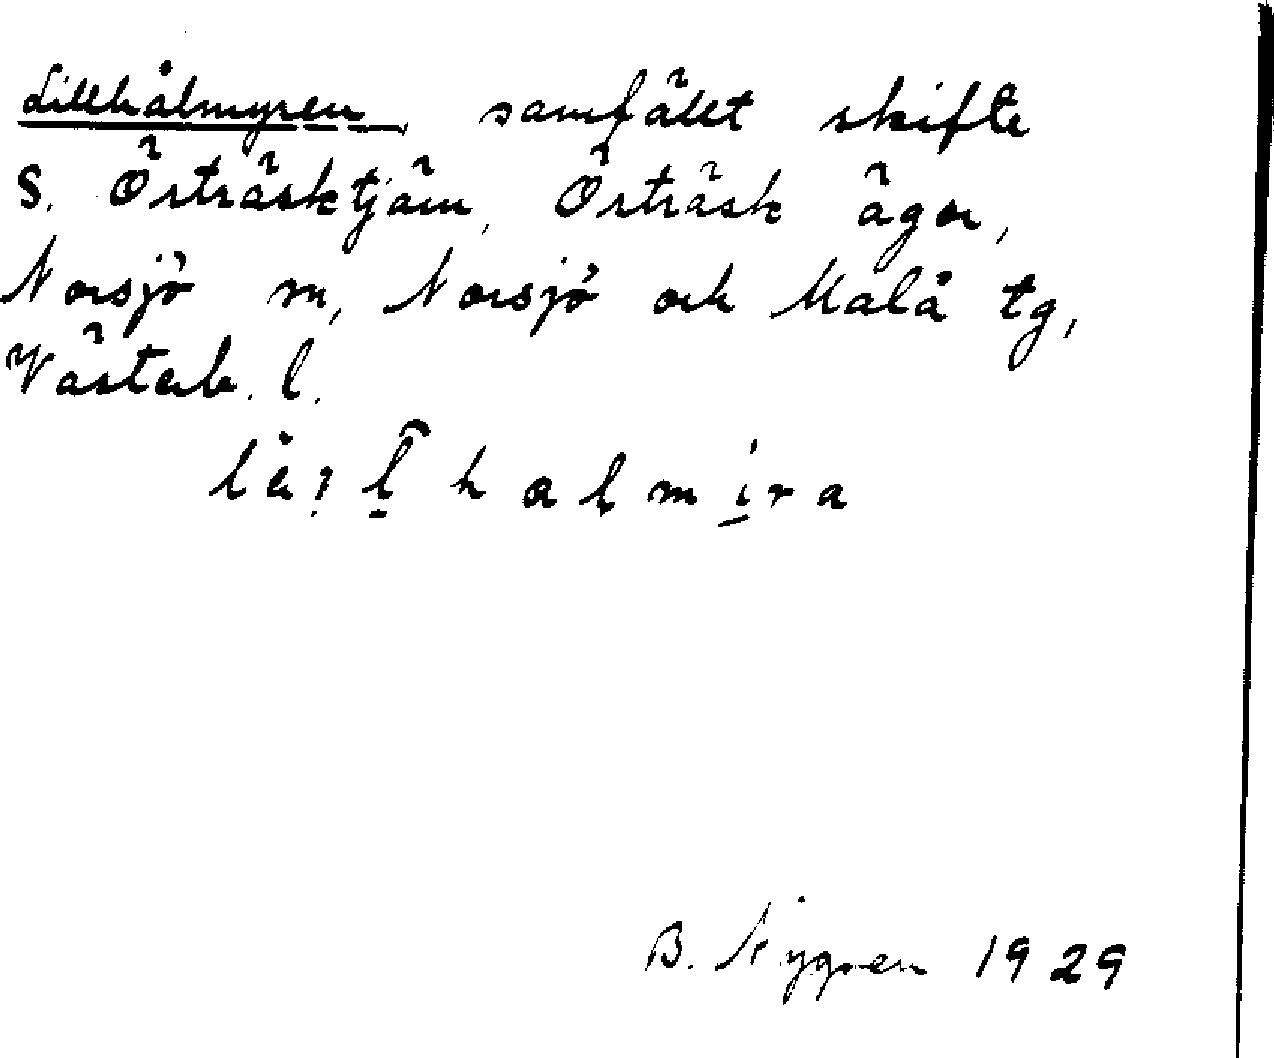 Lillhålmyren, samfällt skifte
S. Örträsktjärn, Örträsk ägor,
Norsjö sn, Norsjö och Malå tg,
Västerb. l.
B. Nygren 1929